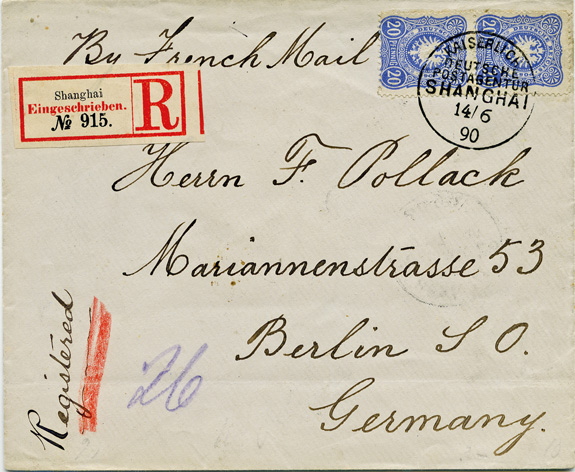 By French Mail
20 20
20 20
KAISERLICH
DEUTSCHE
POSTAGENTUR
SHANGHAI
14/6
90
Shanghai
Eingeschrieben.
№ 915.
R
Herrn F. Pollack
Mariannenstrasse 53
Berlin S O.
Germany.
Registered
26